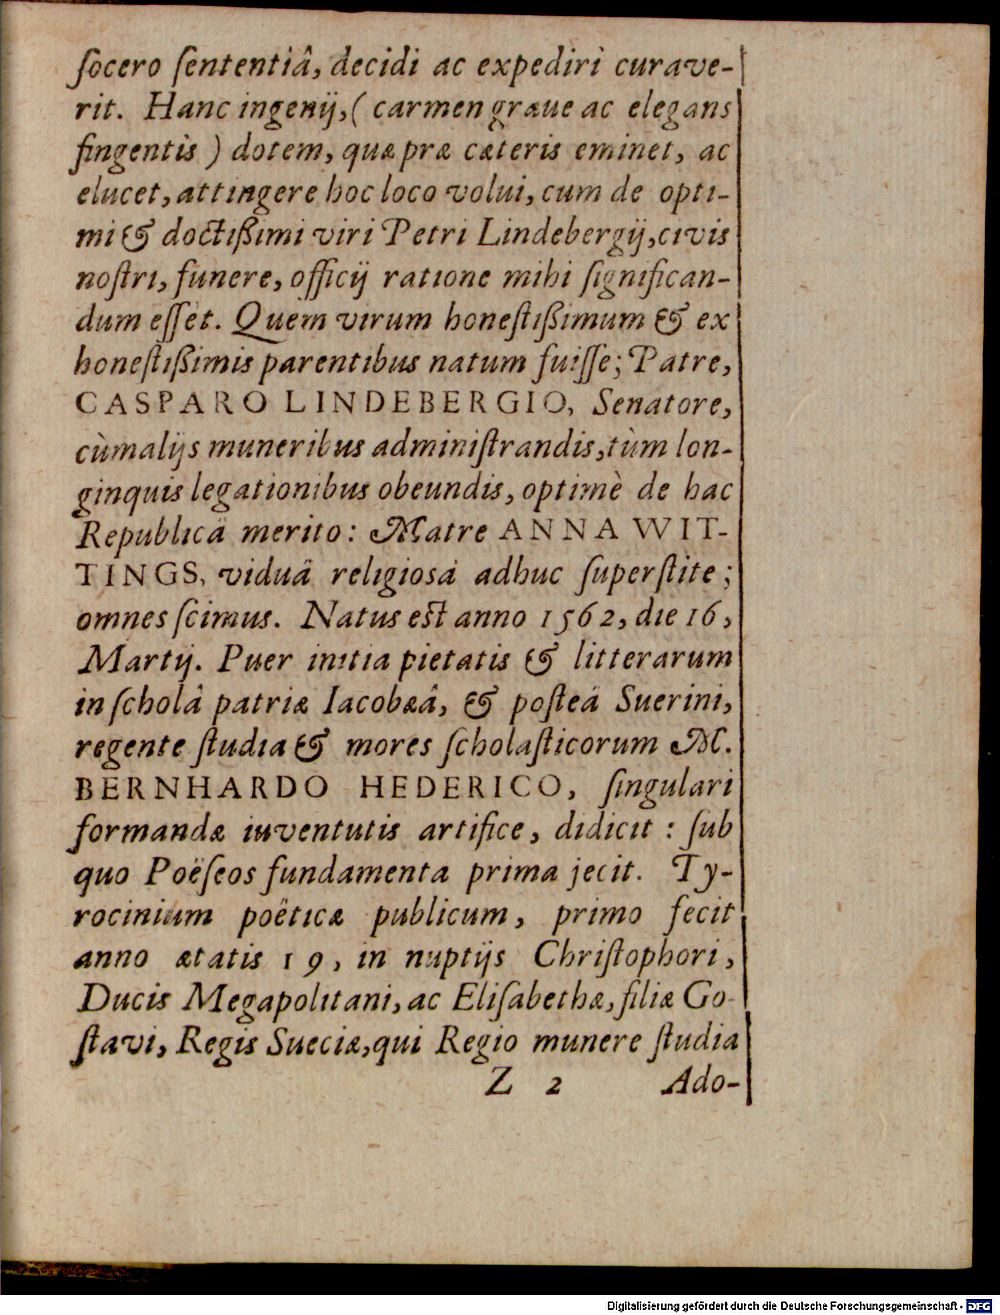 ſocero ſententiâ, decidi ac expediri curave-
rit. Hanc ingenij, (carmen graue ac elegans
fingentis) dotem, quæ præ cæteris eminet, ac
elucet, attingere hoc loco volui, cum de opti-
mi & doctißimi viri Petri Lindebergij, civis
noſtri, funere, officij ratione mihi ſignifican-
dum eſſet. Quem virum honeſtißimum & ex
honeſtißimis parentibus natum fuiſſe; Patre,
CASPARO LINDEBERGIO, Senatore,
cùm alijs muneribus adminiſtrandis, tùm lon-
ginquis legationibus obeundis, optimè de hac
Republicâ merito: Matre ANNA WIT-
TINGS, viduâ religiosâ adhuc ſuperſtite;
omnes ſcimus. Natus est anno 1562, die 16,
Martij. Puer initia pietatis & litterarum
in ſcholâ patriæ Iacobæâ, & poſteà Suerini,
regente ſtudia & mores ſcholaſticorum M.
BERNHARDO HEDERICO, ſingulari
formandæ iuventutis artifice, didicit: ſub
quo Poëſeos fundamenta prima jecit. Ty-
rocinium poëticæ publicum, primo fecit
anno ætatis 19, in nuptijs Chriſtophori,
Ducis Megapolitani, ac Eliſabethæ, filiæ Go-
ſtavi, Regis Sueciæ, qui Regio munere ſtudia
Z 2 Ado-
Digitalisierung gefördert durch die Deutsche Forschungsgemeinschaft - DFG